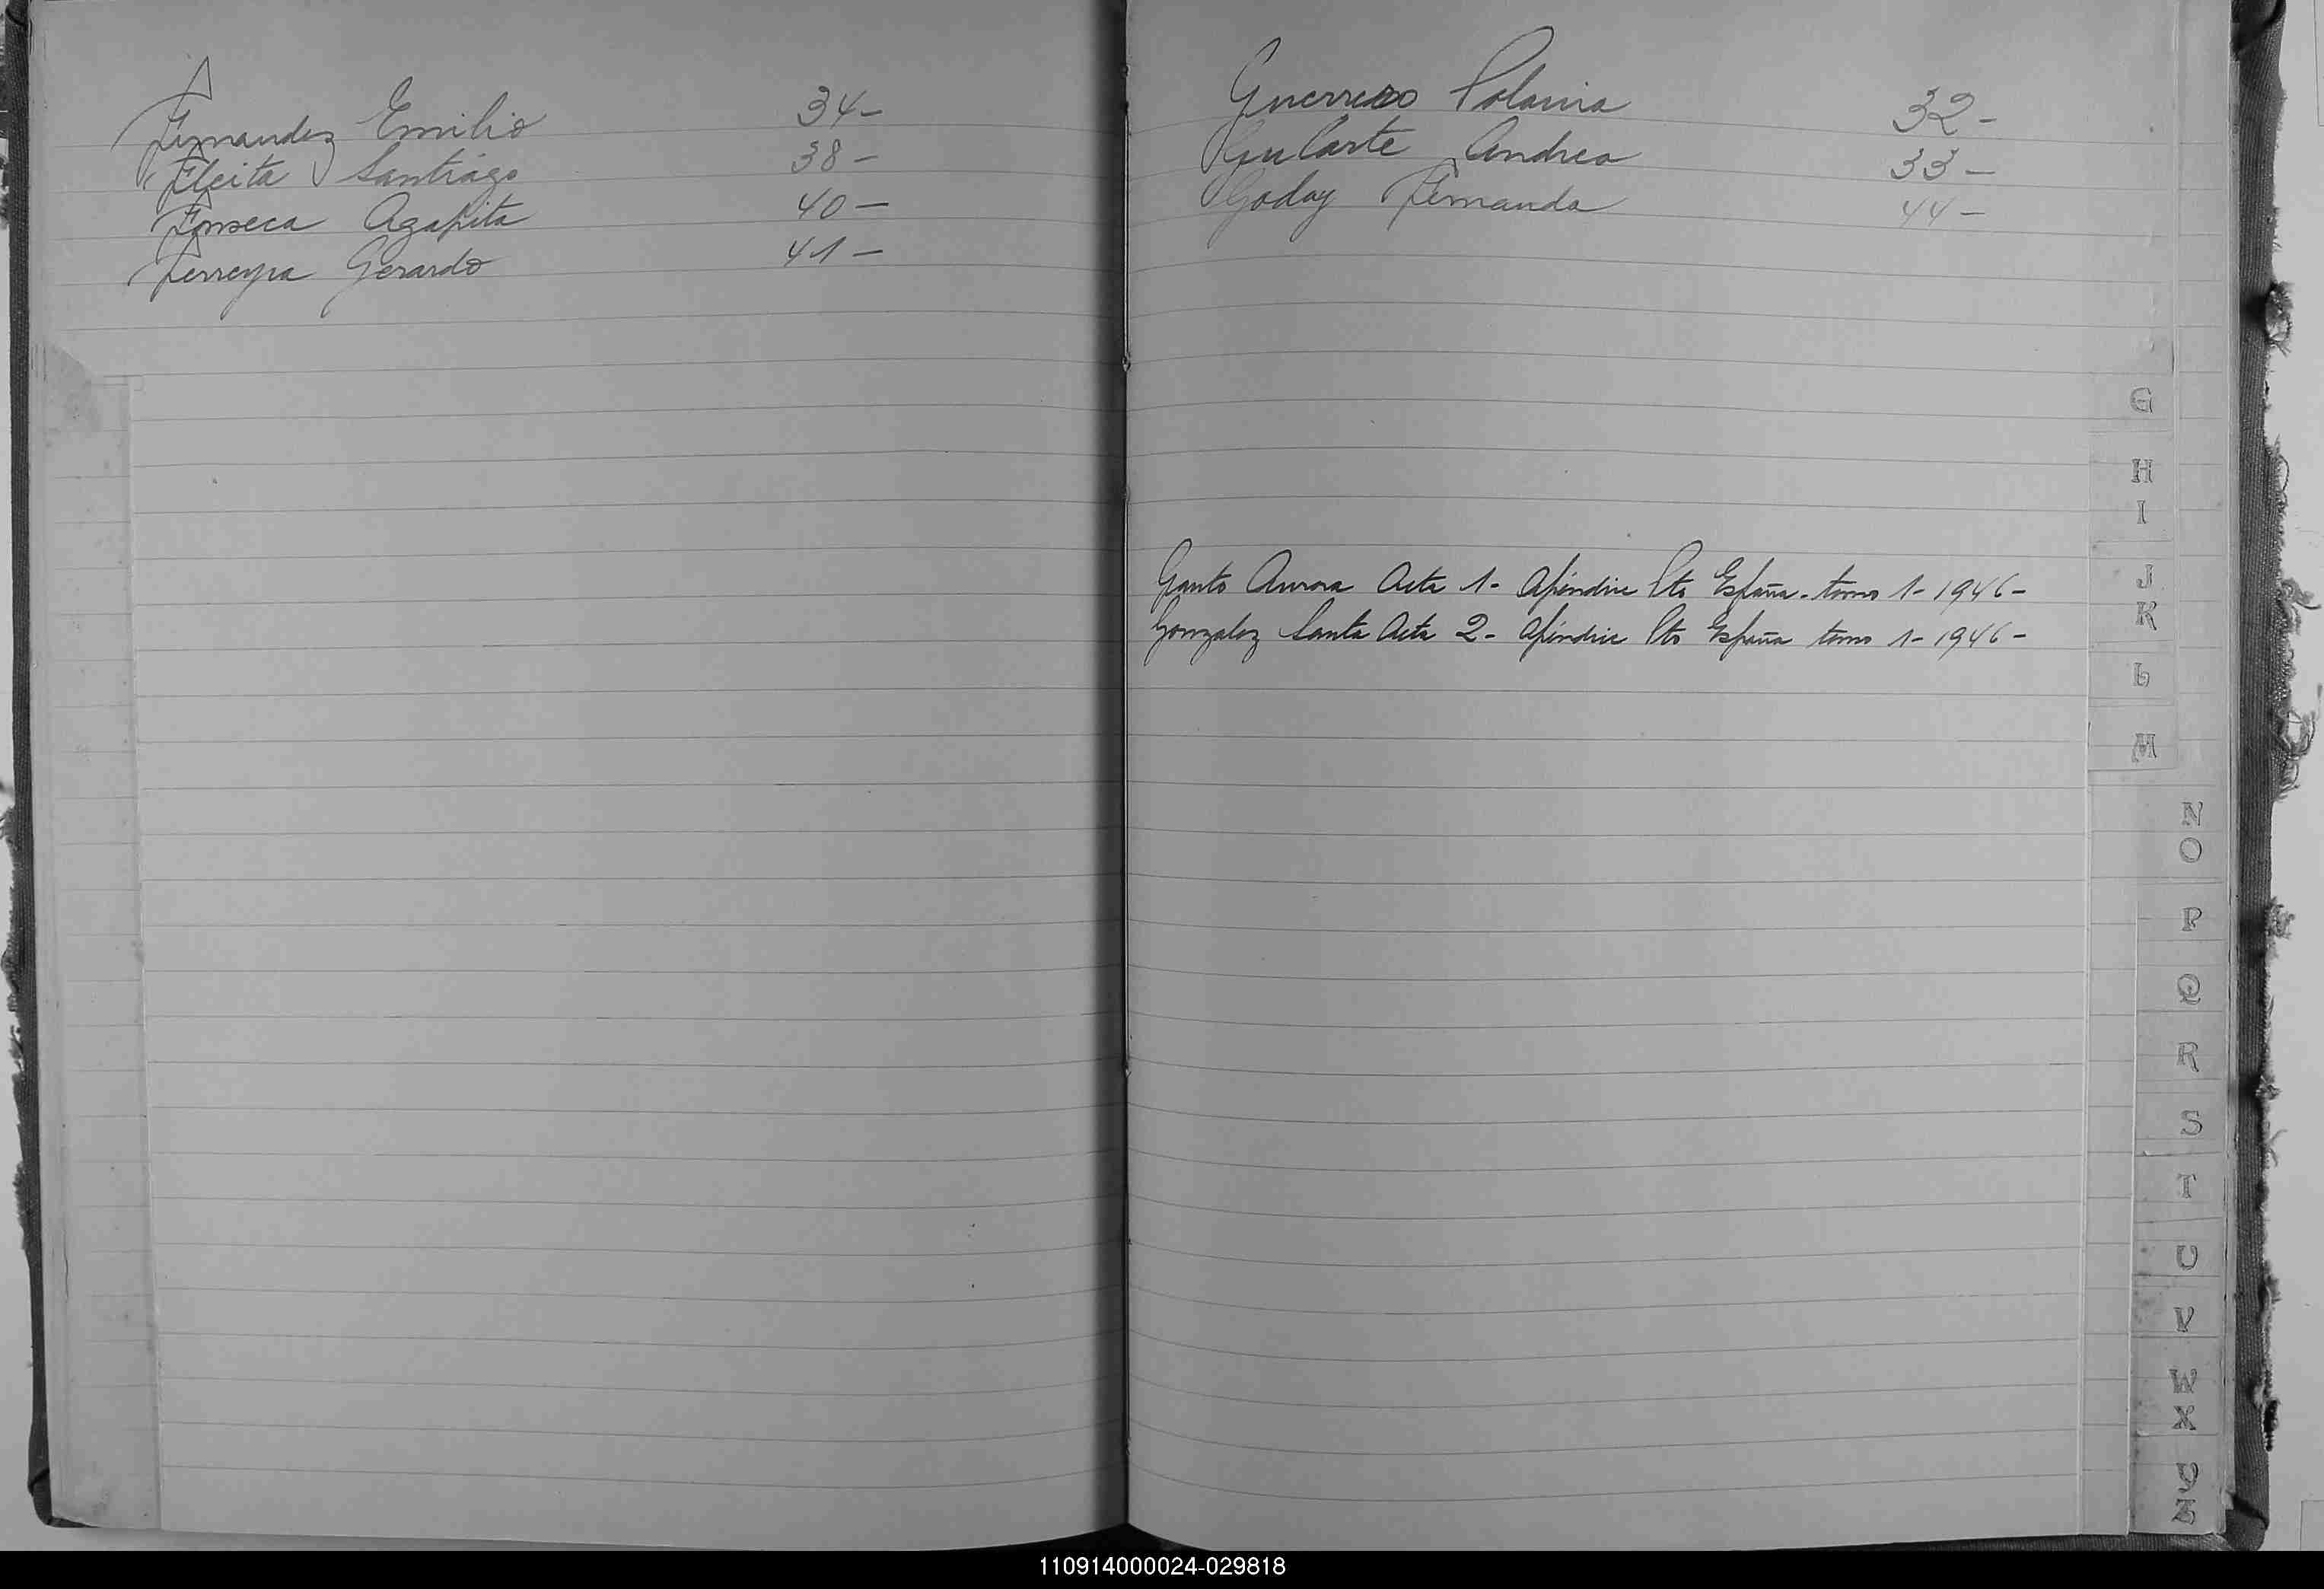 Fernandez Emilio 34-
Fleita Santiago 38-
Fonseca Agapita 40-
Ferreyra Gerardo 41-
Guerrero Polania 32-
Gularte Andrea 33-
Goday Fernanda 44-
Gauto Aurora Acta 1- Apéndice Pto España - tomo 1- 1946-
Gonzalez Santa Acta 2- Apéndice Pto España tomo 1- 1946-
G
H
I
J
K
L
M
N
O
P
Q
R
S
T
U
V
W
X
Y
Z
110914000024-029818